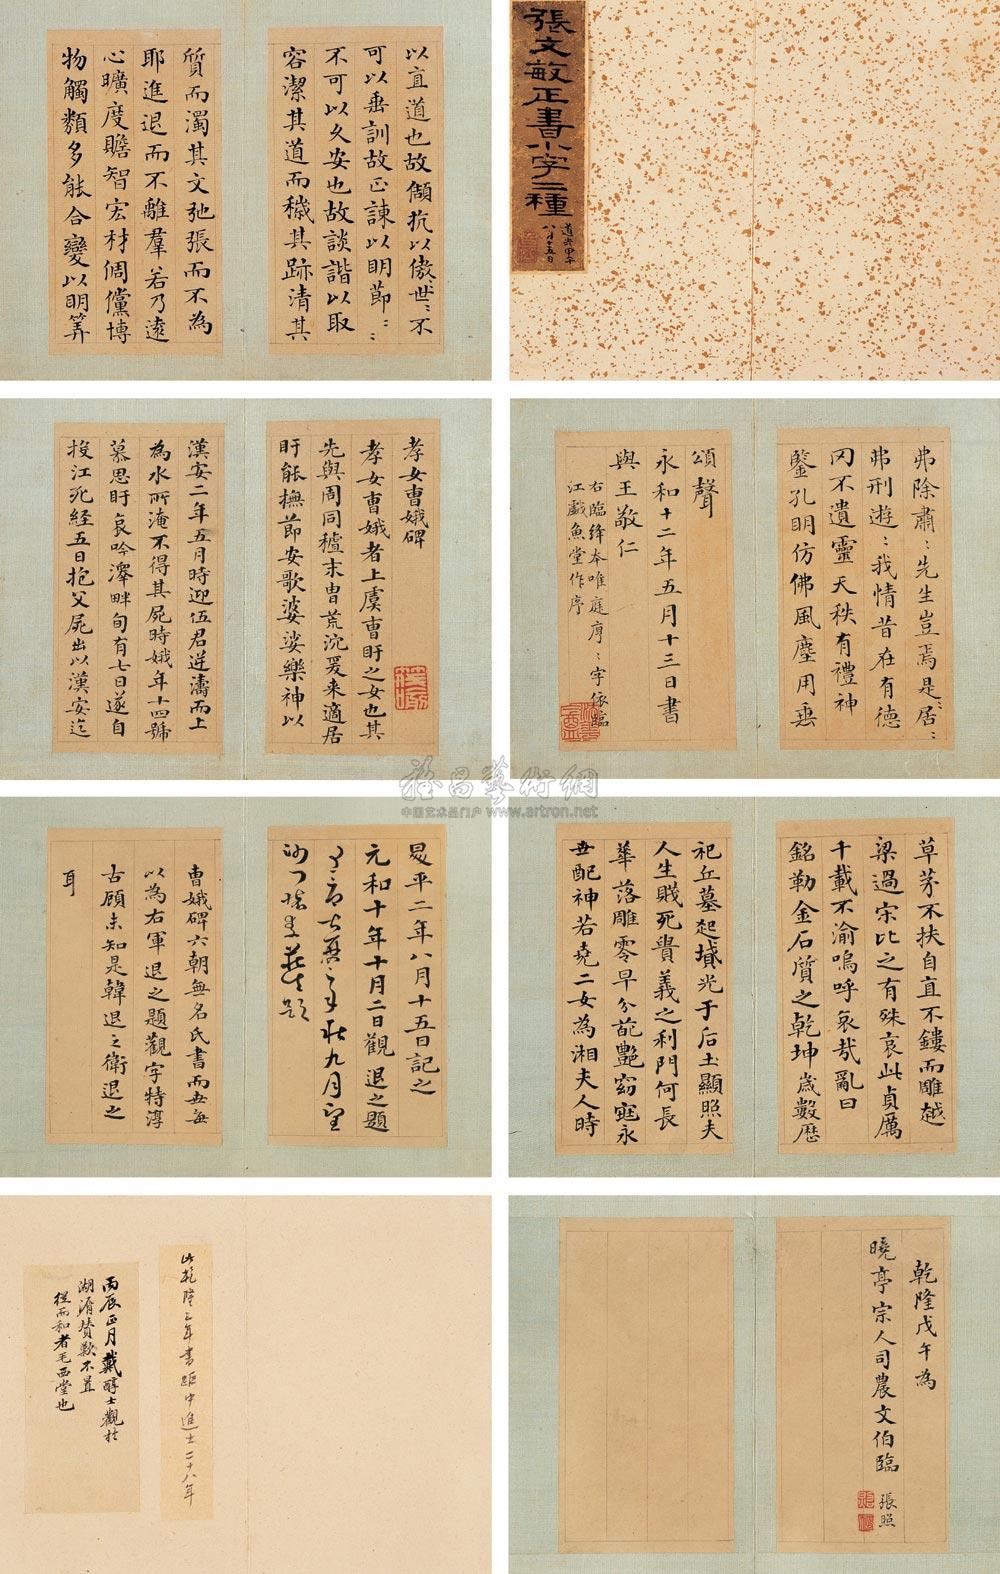 張文敏正書小字二種
道光甲午
八月十五日
以直道也故頡抗以傲世〻不
可以垂訓故正諫以明節〻
不可以久安也故談諧以取
容潔其道而穢其跡清其
質而濁其文弛張而不為
耶進退而不離羣若乃遠
心曠度贍智宏材倜儻博
物觸類多能合變以明筭
弗除肅〻先生豈焉是居〻
弗刑遊〻我情昔在有德
罔不遺靈天秩有禮神
鑒孔明仿佛風塵用垂
頌聲
永和十二年五月十三日書
與王敬仁
右臨絳本唯庭序〻字依臨
江戲魚堂作序
孝女曹娥碑
孝女曹娥者上虞曹盱之女也其
先與周同穮末冑荒沉爰来適居
盱能撫節安歌婆娑樂神以
漢安二年五月時迎伍君逆濤而上
為水所淹不得其屍時娥年十四號
慕思盱哀吟澤畔旬有七日遂自
投江死経五日抱父屍出以漢安迄
草茅不扶自直不鏤而雕越
梁過宋比之有殊哀此貞厲
千載不渝嗚呼哀哉亂曰
銘勒金石質之乾坤歲數歷
祀丘墓起墳光于后土顯照夫
人生賤死貴義之利門何長
華落雕零早分葩艷窈窕永
世配神若堯二女為湘夫人時
昇平二年八月十五日記之
元和十年十月二日觀退之題
曹娥碑六朝無名氏書而世每
以為右軍退之題觀字特淳
古顧未知是韓退之衛退之
耳
乾隆戊午為
曉亭宗人司農文伯臨
張照
此乾隆三年書距中進士二十八年
丙辰正月戴醇士觀於
湖濱賛歎不置
從而和者毛西堂也
雅昌藝術網
中国艺术品门户 www.artron.net